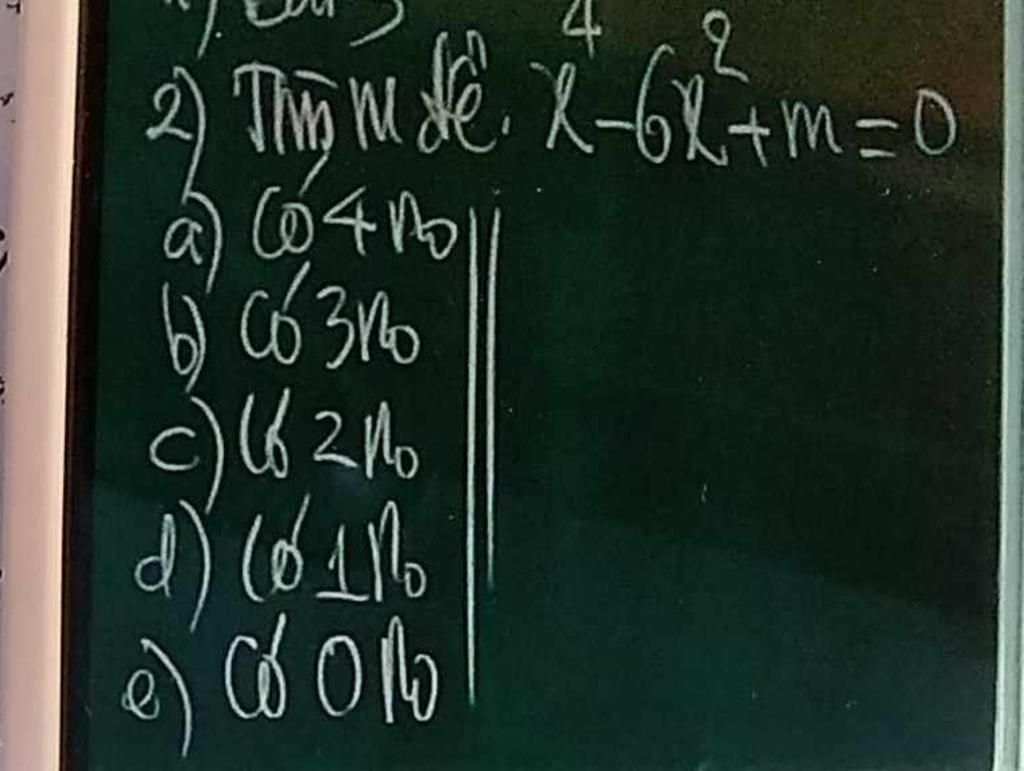 2) Tìm m để. x⁴-6x²+m=0
a) Có 4 no
b) Có 3 no
c) Có 2 no
d) Có 1 no
e) Có 0 no